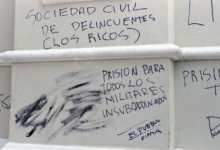 SOCIEDAD CIVIL
DE DELINCUENTES
(LOS RICOS)
PRISION PARA
TODOS LOS
MILITARES
INSUBORDINADOS
EL PUEBLO